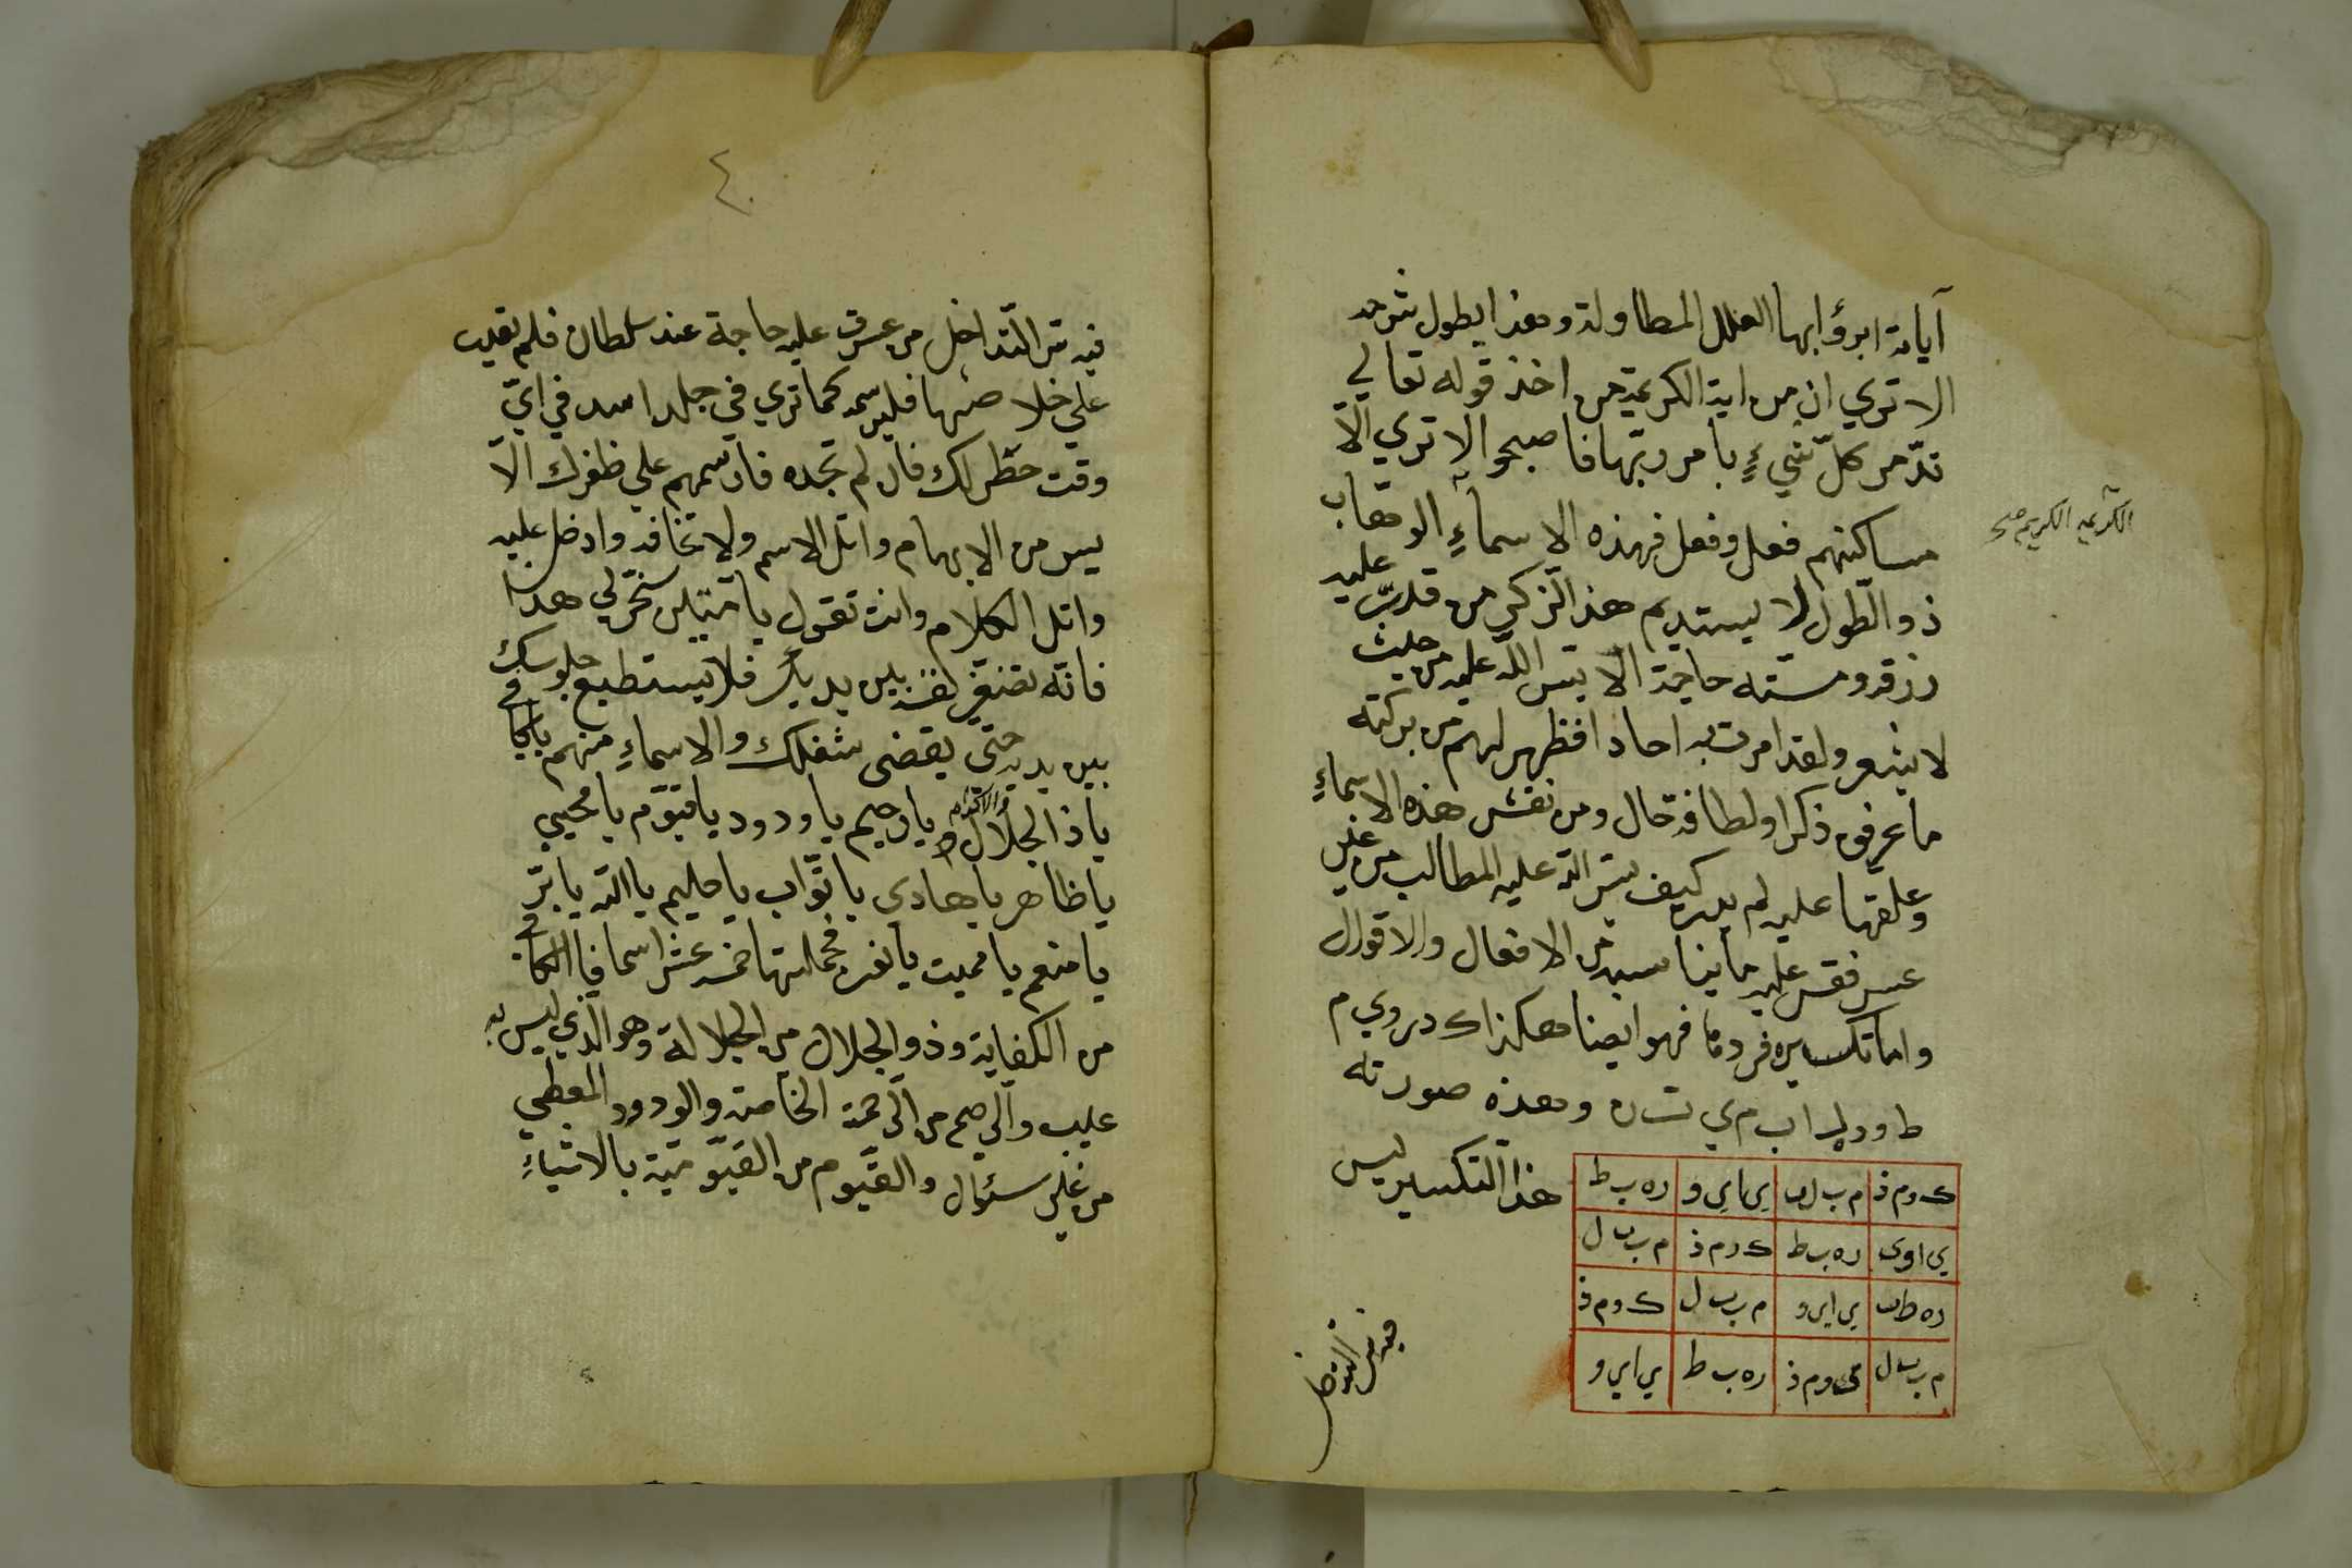 آياته ابرؤ ابها العلل المطاولة وهذا يطول شرحه
الا تري ان من اية الكريمة من اخذ قوله تعالي
تدّمر كلّ شيءٍ بامر ربّها فاصبحوا لا تري الّا
مساكنهم فعل وفعل فهذه الاسماءِ الوهّاب
الكريم
ذو الطّول لا يستديم هذا الذكر من قدر عليه
رزقه ومسته حاجة الا يسر اللّه عليه من حيث
لا يشعر ولقد امرت به احادا فظهر لهم من بركته
ما عرفوه ذكرا ولطافة حال ومن نقش هذه الاسماءِ
وعلقها عليه لم يدر كيف يسّر اللّه عليه المطالب من غير
عسر فقس عليه ما يناسبه من الافعال والاقوال
واما تكسيره فردها فهو ايضا هكذا ك د ر و ي م
ط و د ل ا ب م ي ت ه وهذه صورته
هذا التكسير ليس
ك ر م ذ | م ب ل | ي ا ي و | ر ه ب ط
ي ا و ي | ر ه ب ط | ك ر م ذ | م ب ل
ر ه ط ب | ي ا ي و | م ب ل | ك و م ذ
م ب ل | ك و م ذ | ر ه ب ط | ي ا ي و
فيه من التداخل
٤٠
فيه من التّداخل من عسرت عليه حاجة عند سلطان فلم يغلب
علي خلاصها فليرسمه كما تري في جلد اسد في ايّ
وقت حظر لك فان لم تجده فارسمهم علي ظفرك الا
يسر من الابهام واتل الاسم ولا تخافه وادخل عليه
واتل الكلام وانت تقول يا متين سخّر لي هذا
فانّه بين يديك فلا يستطيع جلوسك
بين يديه حتّي يقضي شغلك والاسماءِ منهم يا كافي
يا ذا الجلال والاكرام يا رحيم يا ودود يا قيّوم يا محيي
يا ظاهر يا هادي يا توّاب يا حليم يا اللّه يا برّ
يا منعم يا مميت يا نفر فجملتها خمسة عشر اسما فالكافي
من الكفاية وذو الجلال من الجلالة وهو الّذي ليس به
عيب والرّحيم من الرّحمة الخاصة والودود المعطي
من غير سئوال والقيّوم من القيّوميّة بالاشياءِ